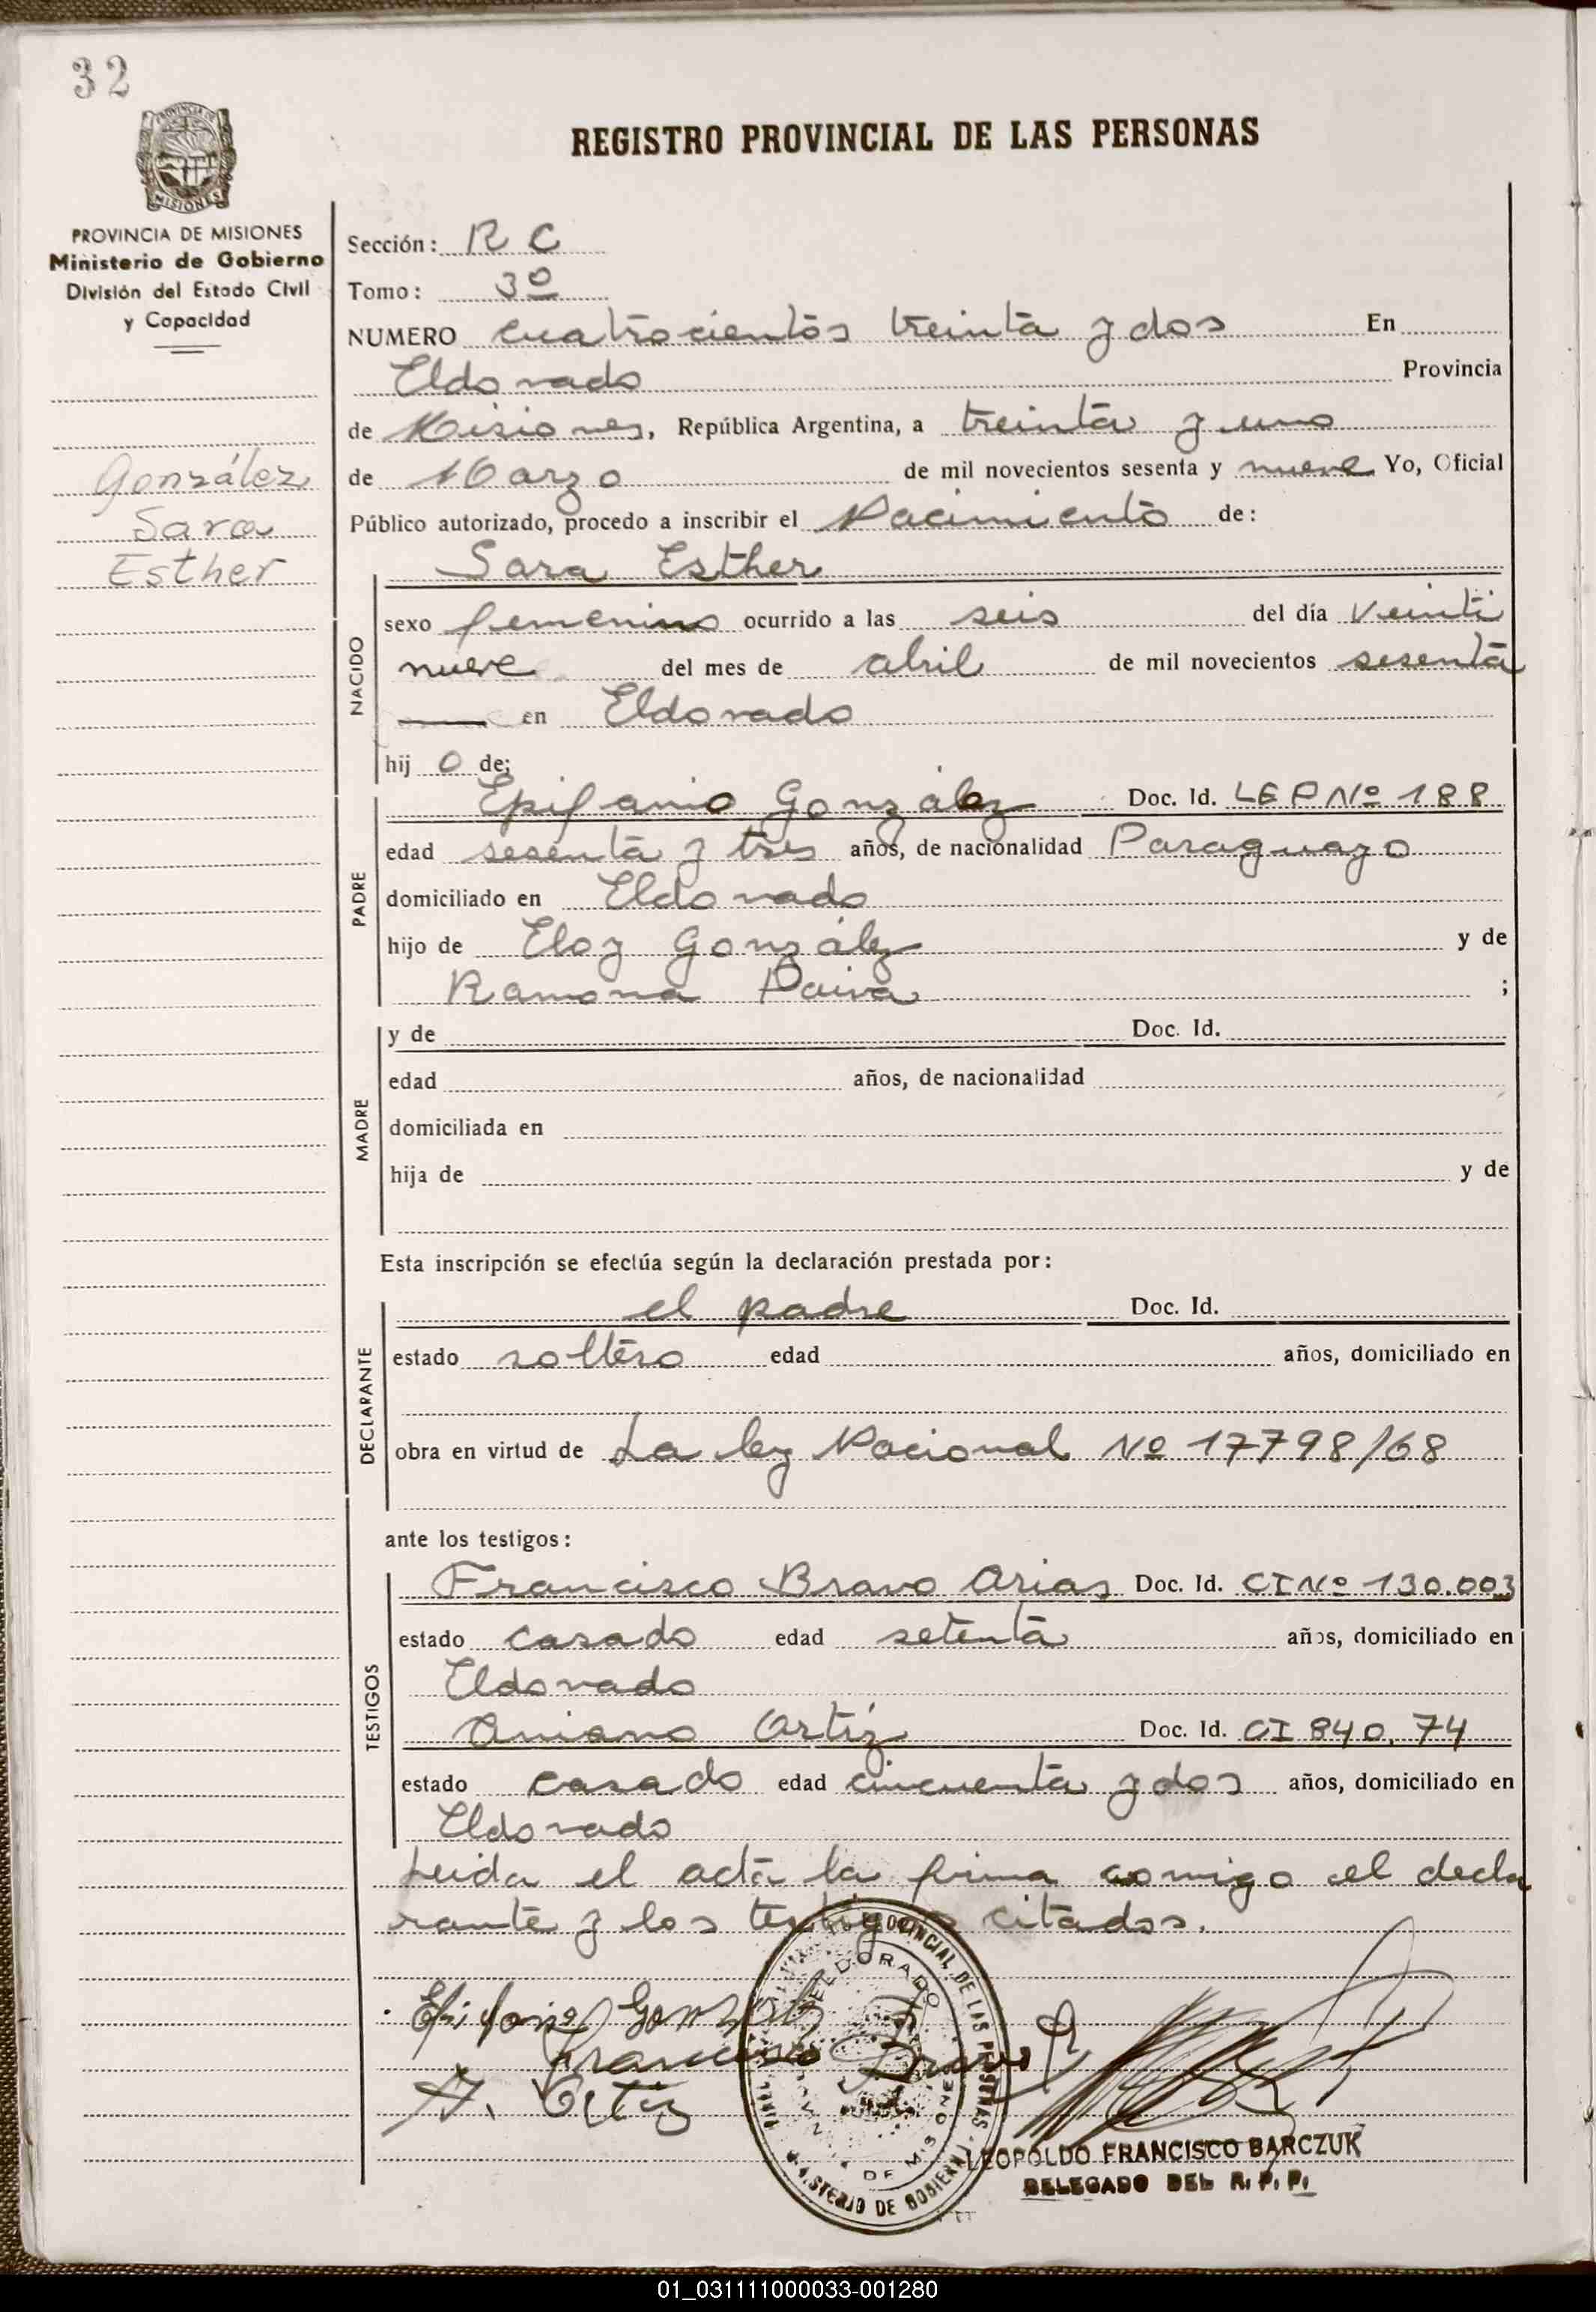 32
PROVINCIA DE
MISIONES
REGISTRO PROVINCIAL DE LAS PERSONAS
PROVINCIA DE MISIONES
Ministerio de Gobierno
División del Estado Civil
y Capacidad
González
Sara
Esther
Sección: R C
Tomo: 3º
NUMERO cuatrocientos treinta y dos En
Eldorado Provincia
de Misiones, República Argentina, a treinta y uno
de Marzo de mil novecientos sesenta y nueve Yo, Oficial
Público autorizado, procedo a inscribir el Nacimiento de:
NACIDO
Sara Esther
sexo femenino ocurrido a las seis del día veinti
nueve del mes de abril de mil novecientos sesenta
en Eldorado
hij o de;
PADRE
Epifanio González Doc. Id. LEPNº 188
edad sesenta y tres años, de nacionalidad Paraguayo
domiciliado en Eldorado
hijo de Eloy González y de
Ramona Paiva ;
MADRE
y de Doc. Id.
edad años, de nacionalidad
domiciliada en
hija de y de
Esta inscripción se efectúa según la declaración prestada por:
DECLARANTE
el padre Doc. Id.
estado soltero edad años, domiciliado en
obra en virtud de La ley Nacional Nº 17798/68
ante los testigos:
TESTIGOS
Francisco Bravo Arias Doc. Id. CI Nº 130.003
estado casado edad setenta años, domiciliado en
Eldorado
Aniano Ortíz Doc. Id. CI 840.74
estado casado edad cincuenta y dos años, domiciliado en
Eldorado
Leida el acta la firma comigo el decla
rante y los testigos citados.
Epifanio Gonzalez
Francisco Bravo
A. Ortiz
PROVINCIAL DE LAS PERSONAS
ELDORADO
DE MISIONES
MINISTERIO DE GOBIERNO
LEOPOLDO FRANCISCO BARCZUK
DELEGADO DEL R. P. P.
01_031111000033-001280